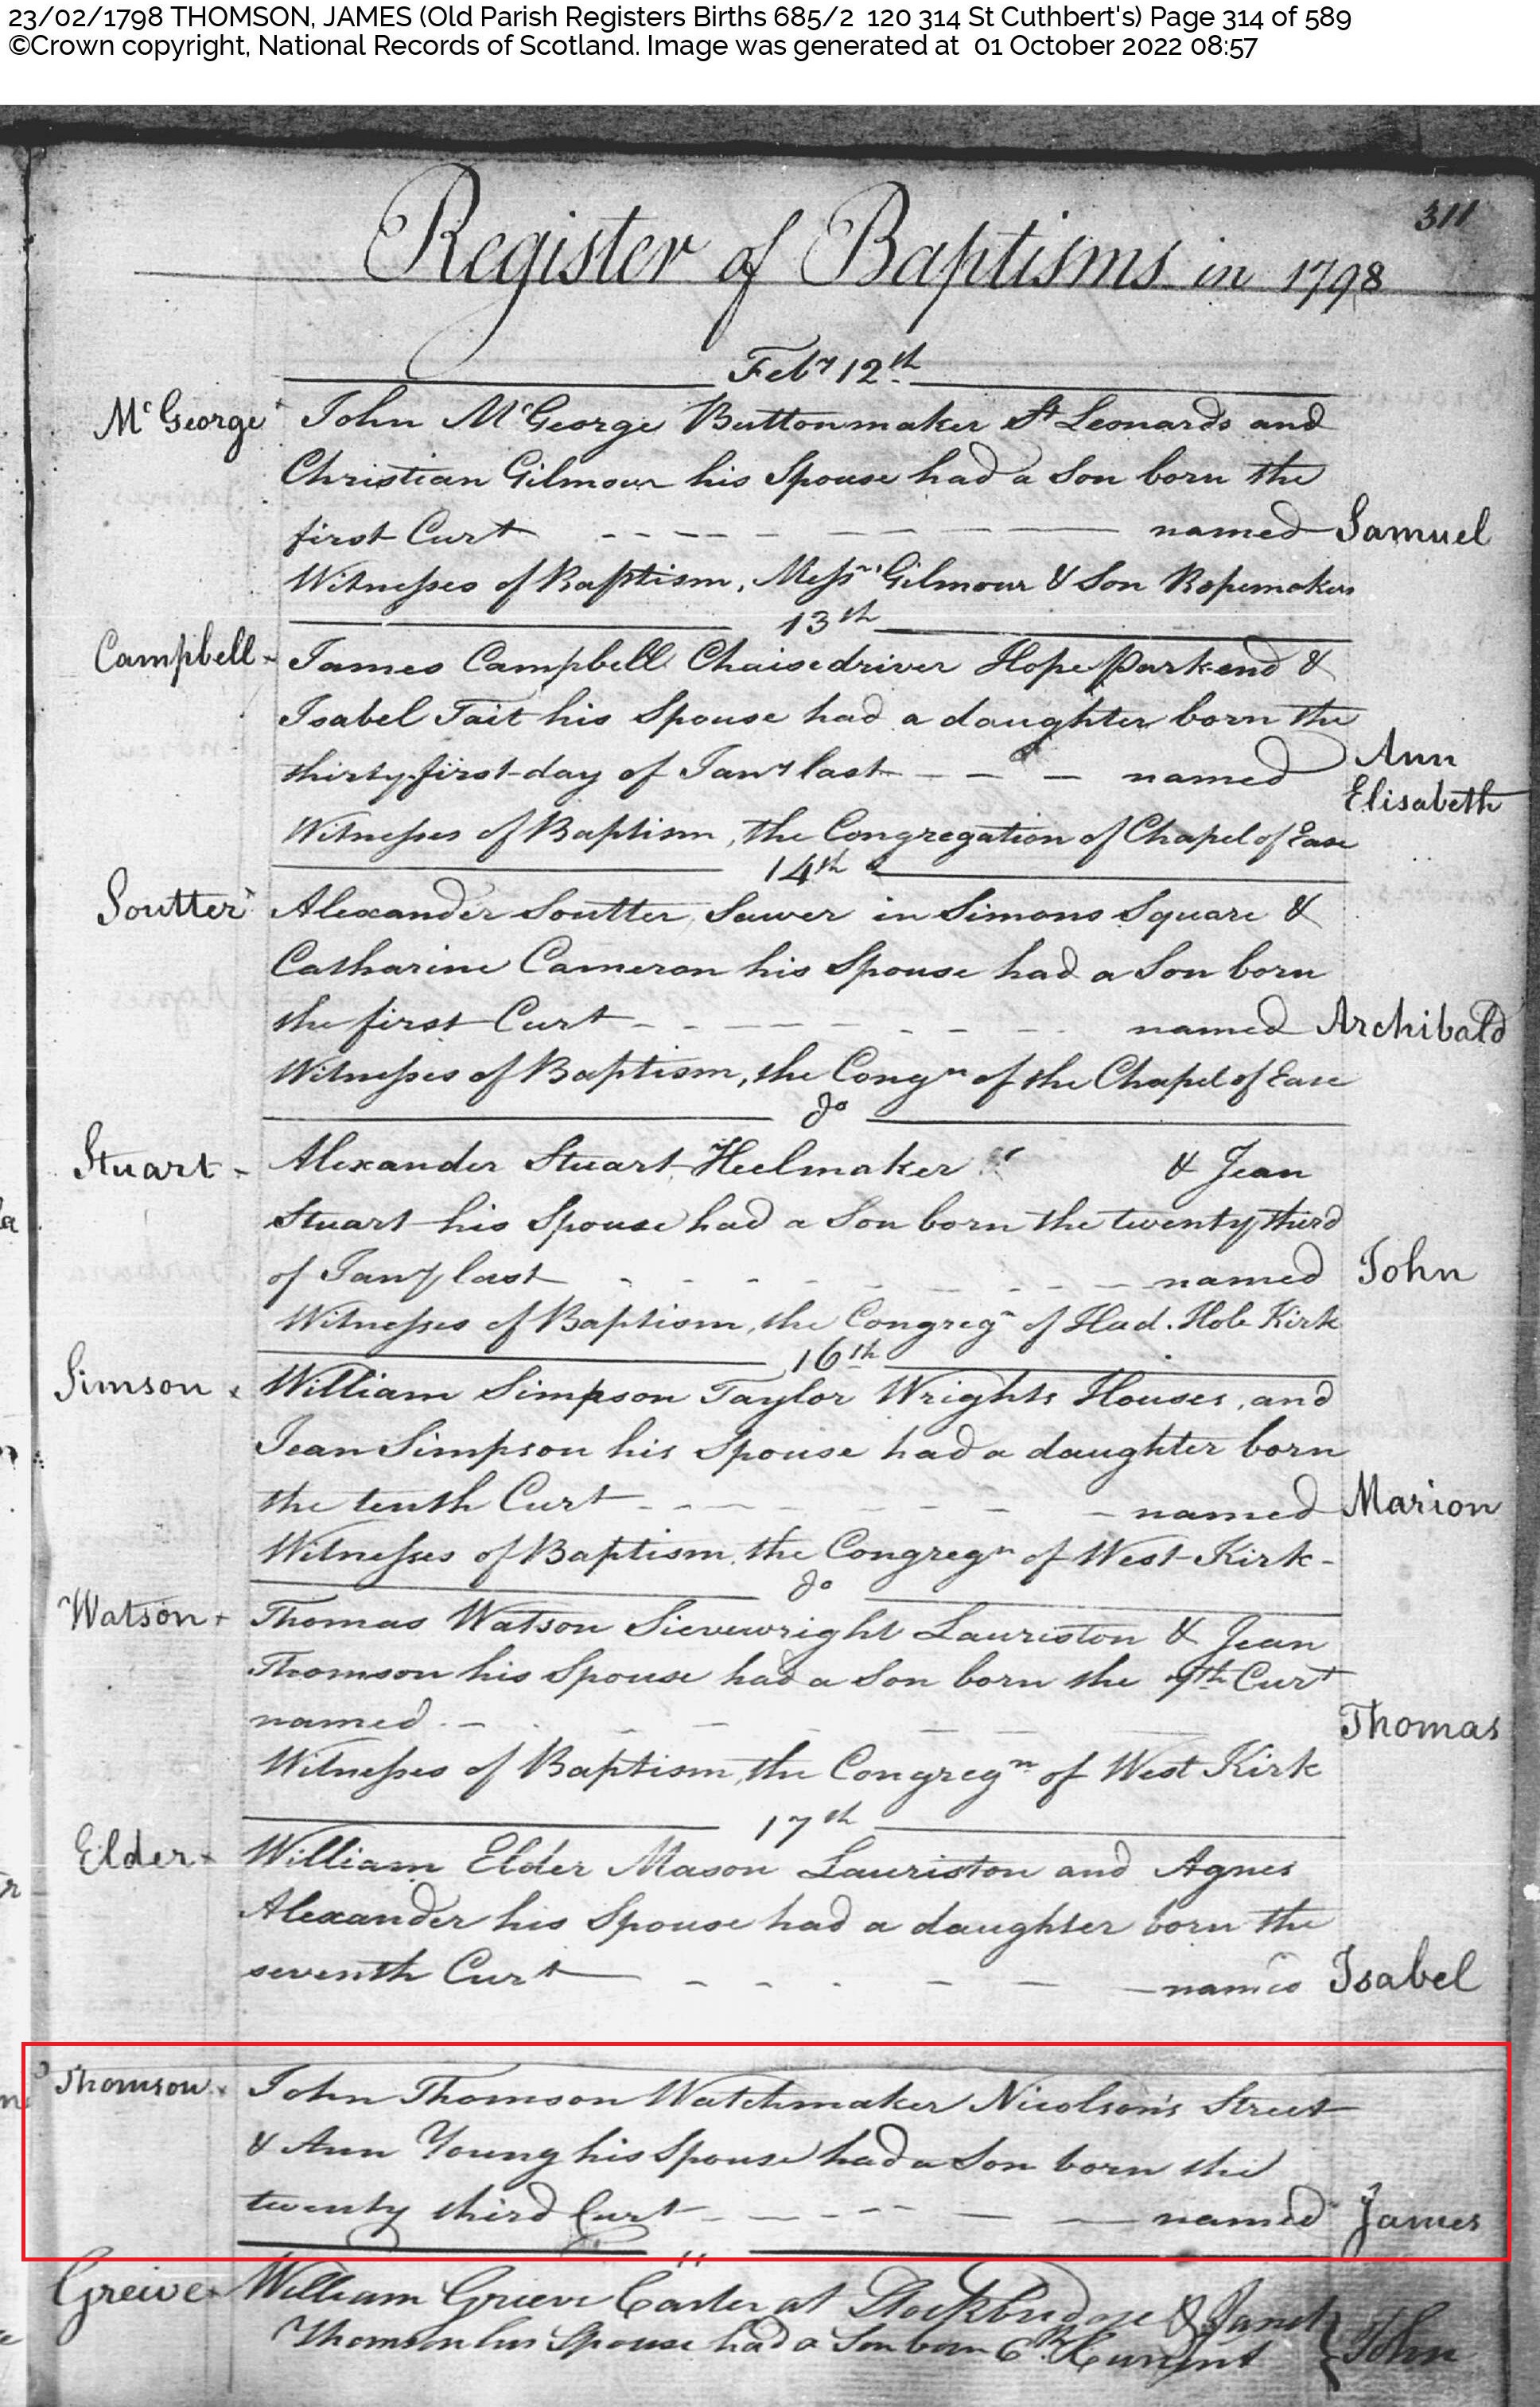 23/02/1798 THOMSON, JAMES (Old Parish Registers Births 685/2 120 314 St Cuthbert's) Page 314 of 589
©Crown copyright, National Records of Scotland. Image was generated at 01 October 2022 08:57
311
Register of Baptisms in 1798
Feby 12th
McGeorge John McGeorge Buttonmaker St Leonards and
Christian Gilmour his Spouse had a Son born the
first Curt named Samuel
Witnesses of Baptism, Messrs Gilmour & Son Ropemakers
13th
Campbell James Campbell Chaisedriver Hope Parkend &
Isabel Tait his Spouse had a daughter born the
thirty first day of Jany last named Ann
Elisabeth
Witnesses of Baptism, the Congregation of Chapel of Ease
14th
Soutter Alexander Soutter, Sawer in Simons Square &
Catharine Cameron his Spouse had a Son born
the first Curt named Archibald
Witnesses of Baptism, the Congn of the Chapel of Ease
do
Stuart Alexander Stuart Heelmaker & Jean
Stuart his Spouse had a Son born the twenty third
of Jany last named John
Witnesses of Baptism, the Congregn of Had. Hole Kirk
16th
Simson William Simpson Taylor Wrights Houses, and
Jean Simpson his Spouse had a daughter born
the tenth Curt named Marion
Witnesses of Baptism, the Congregn of West Kirk
do
Watson Thomas Watson Sievewright Lauriston & Jean
Thomson his Spouse had a Son born the 7th Curt
named Thomas
Witnesses of Baptism, the Congregn of West Kirk
17th
Elder William Elder Mason Lauriston and Agnes
Alexander his Spouse had a daughter born the
seventh Curt named Isabel
Thomson John Thomson Watchmaker Nicolson's Street
& Ann Young his Spouse had a Son born the
twenty third Curt named James
"
Greive William Grieve Carter at Stockbridge & Janet
Thomson his Spouse had a Son born 6th Current John